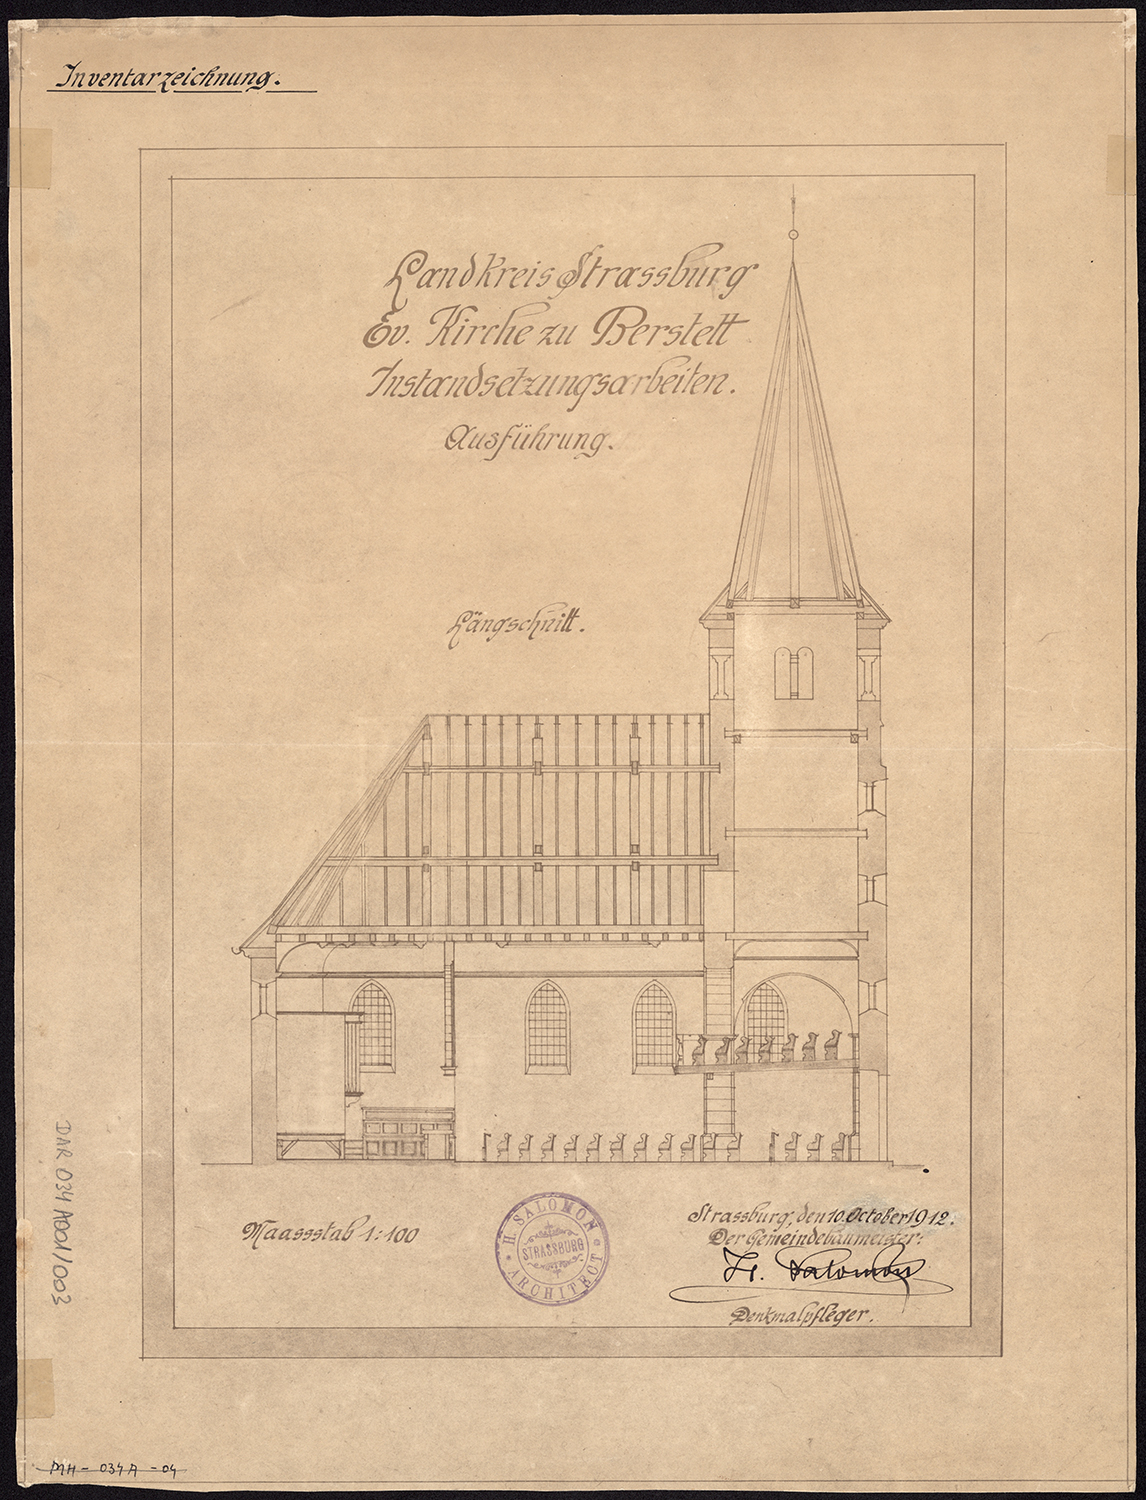 Inventarzeichnung.
Landkreis Strassburg
Ev. Kirche zu Berstett
Instandsetzungsarbeiten.
Ausführung.
Längschnitt.
Maassstab 1:100
H. SALOMON
STRASSBURG
ARCHITECT
Strassburg, den 10. October 1912.
Der Gemeindebaumeister:
H. Salomon
Denkmalpfleger.
DAR 034 A001/003
MH - 034A - 04